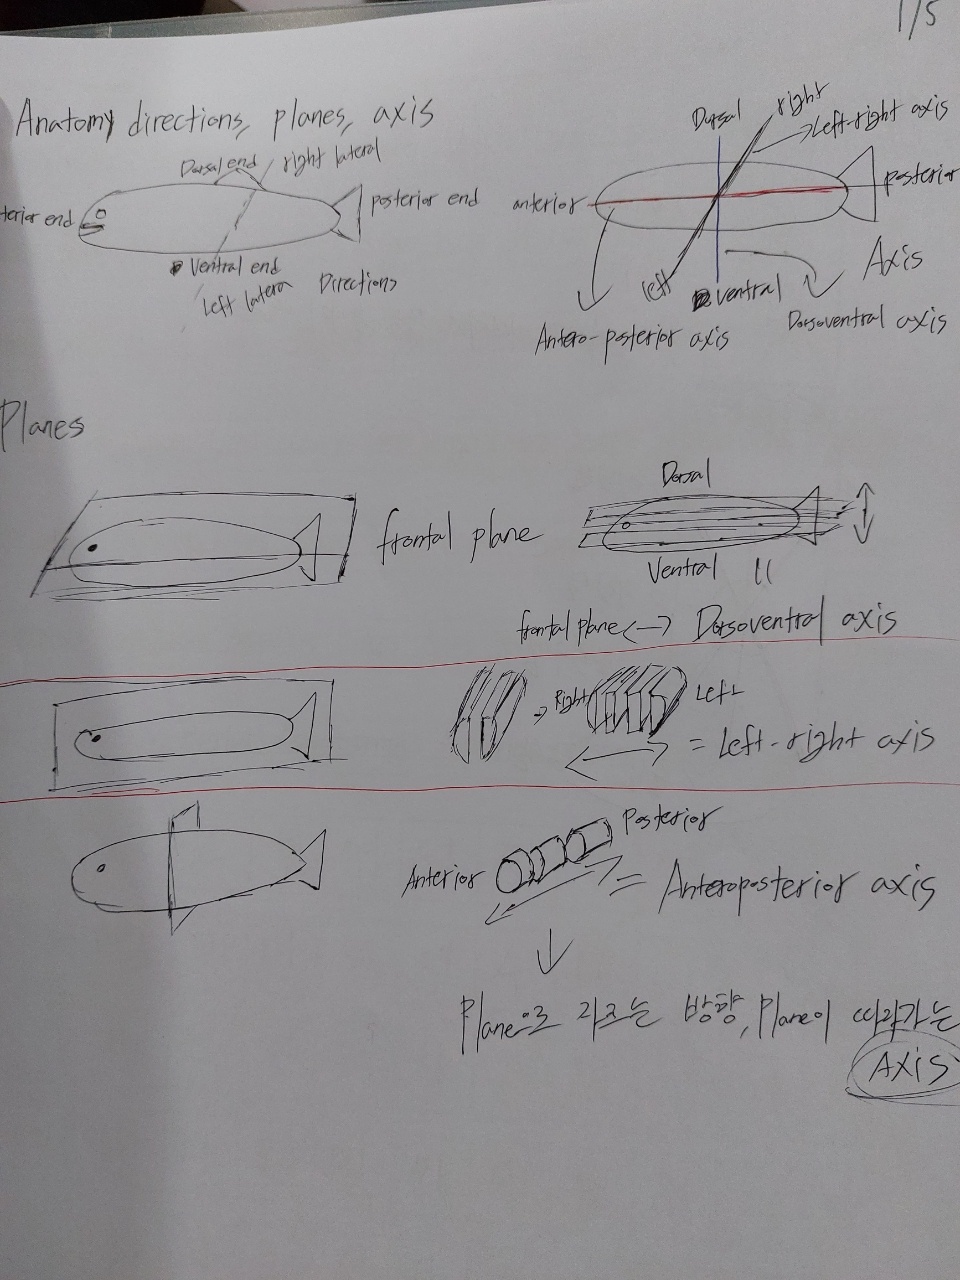 1/5
Anatomy directions, planes, axis
Dorsal end
right lateral
terior end
posterior end
Ventral end
Left latera
Directions
Dorsal
right
Left-right axis
anterior
posterior
left
ventral
Axis
Antero-posterior axis
Dorsoventral axis
Planes
frontal plane
Dorsal
Ventral
frontal plane <-> Dorsoventral axis
Right
Left
= Left-right axis
Anterior
Posterior
= Anteroposterior axis
Plane으로 자르는 방향, Plane이 따라가는
Axis